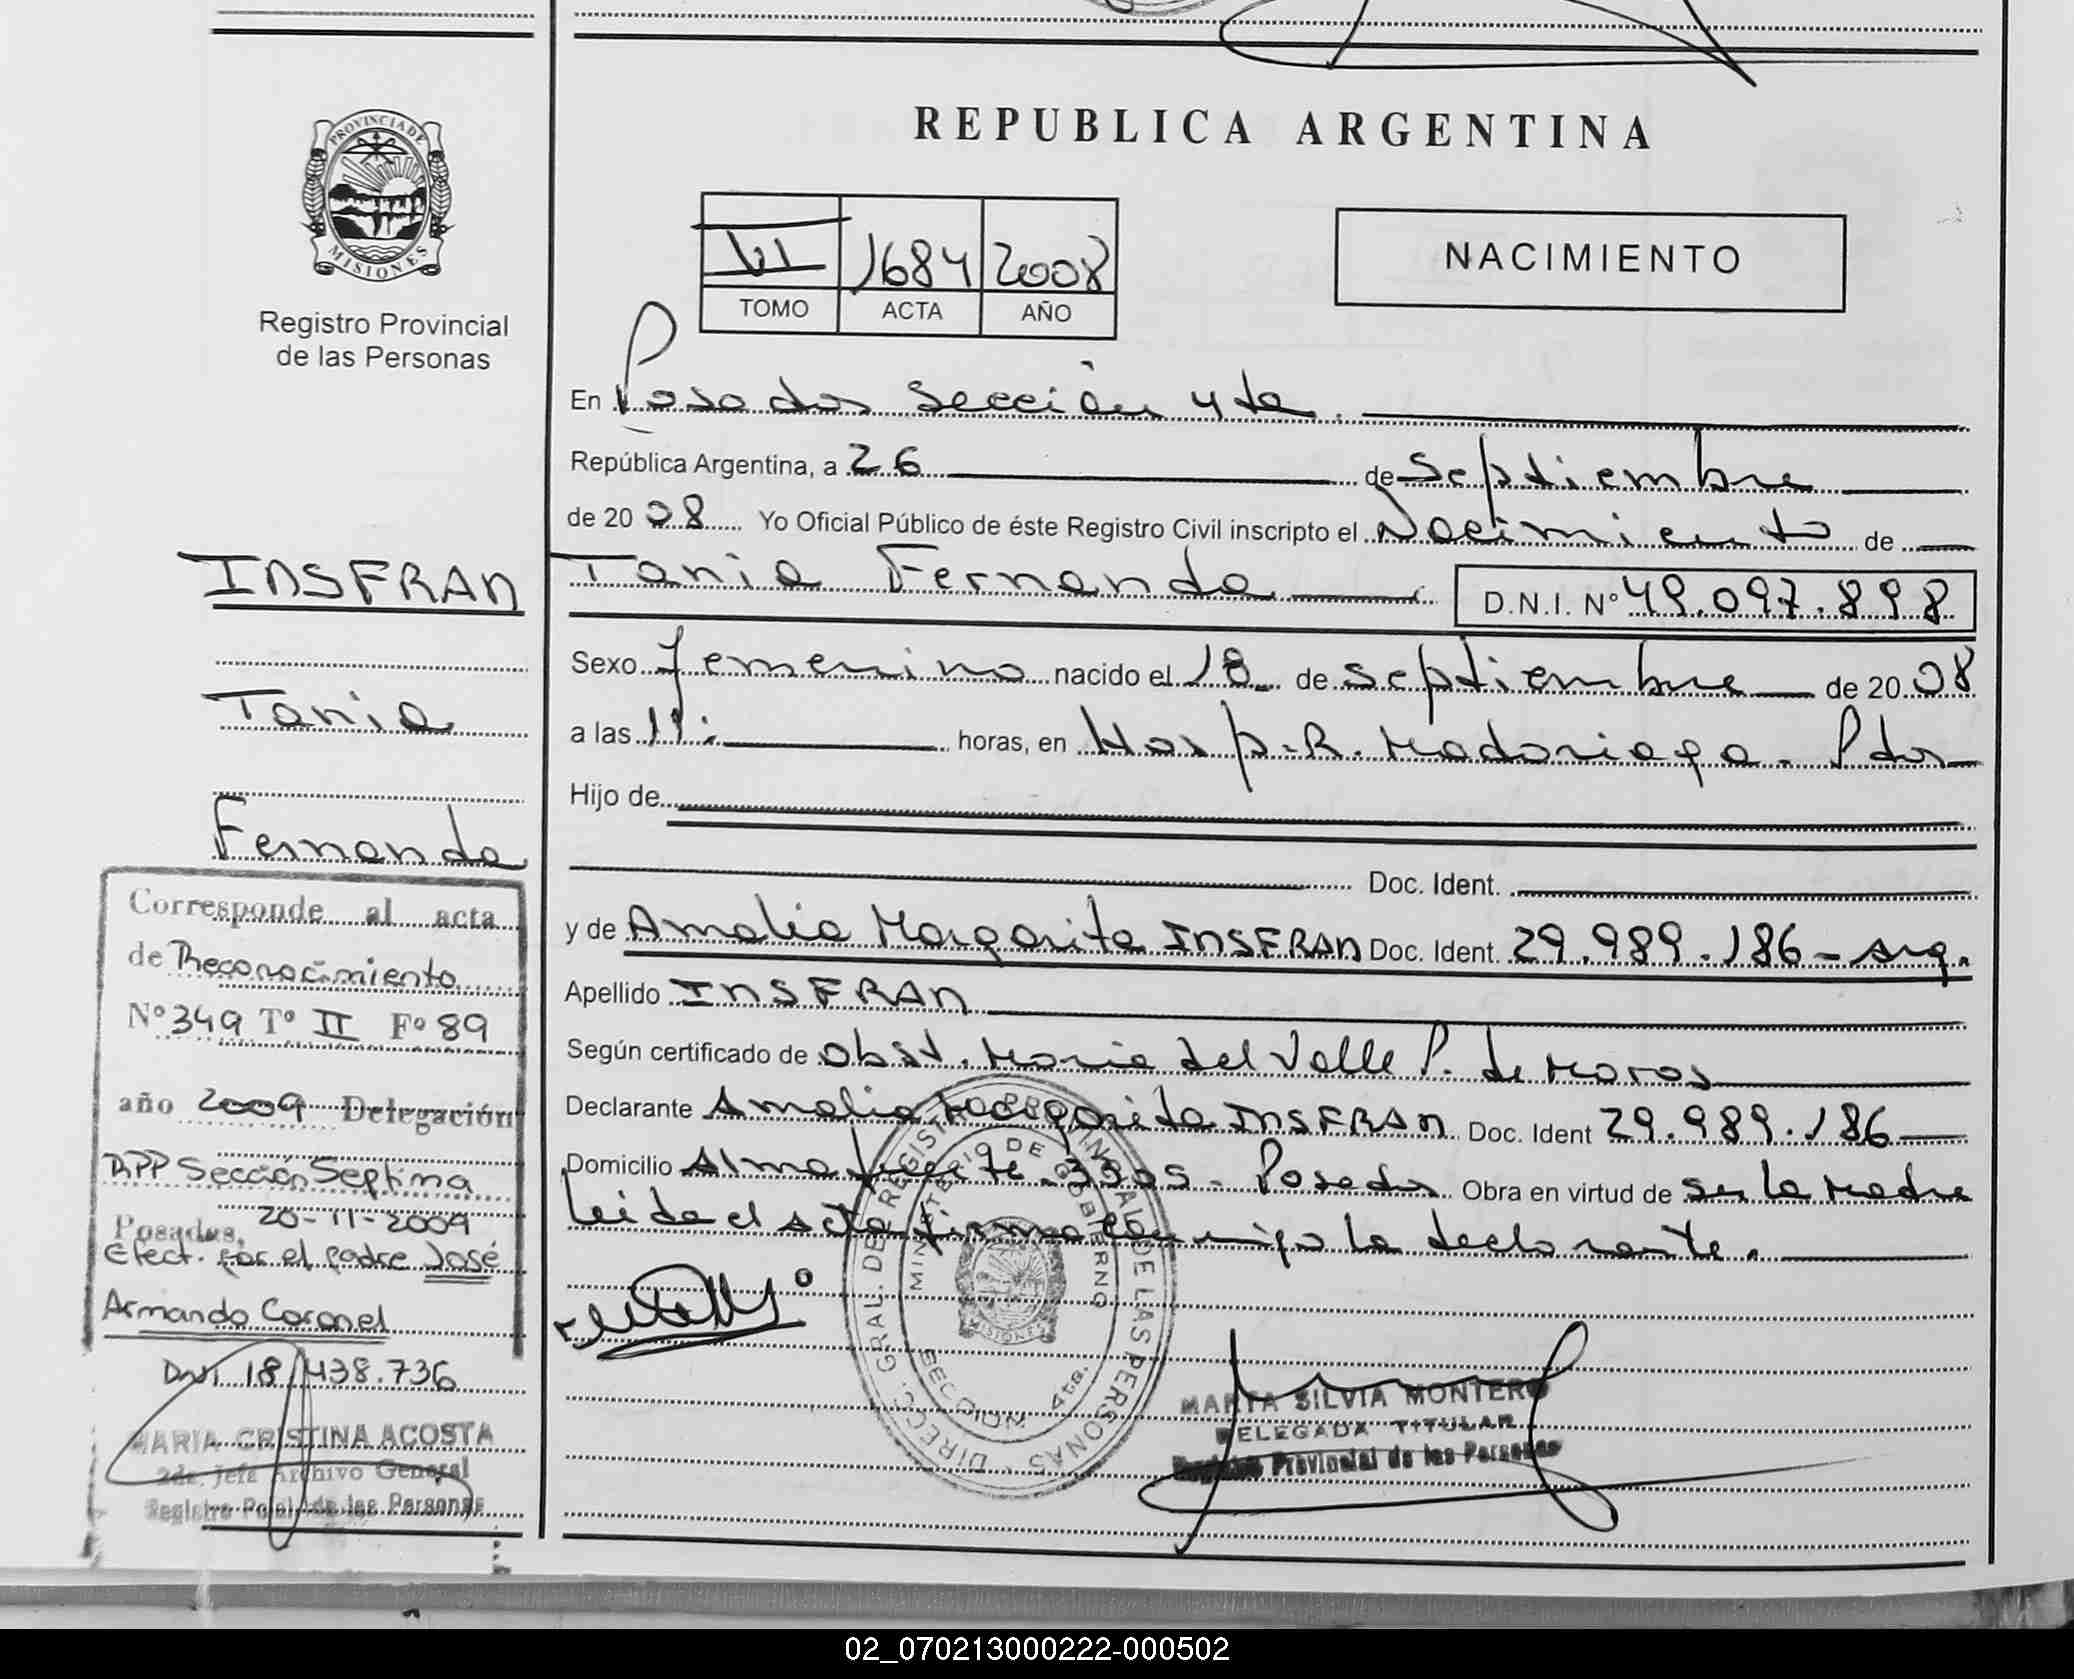 PROVINCIA DE
MISIONES
Registro Provincial
de las Personas
INSFRAN
Tania
Fernanda
Corresponde al acta
de Reconocimiento
Nº 349 Tº II Fº 89
año 2009 Delegación
RPP Sección Septima
Posadas, 20-11-2009
Efect. por el padre José
Armando Coronel
DNI 18.438.736
MARIA CRISTINA ACOSTA
2da. Jefa Archivo General
Registro Pcial. de las Personas
REPUBLICA ARGENTINA
VI 1684 2008
TOMO ACTA AÑO
NACIMIENTO
En Posadas Sección 4ta.
República Argentina, a 26 de Septiembre
de 2008 Yo Oficial Público de éste Registro Civil inscripto el Nacimiento de
Tania Fernanda D.N.I. Nº 49.097.898
Sexo femenino nacido el 18 de septiembre de 2008
a las 11: horas, en Hosp. R. Madariaga. Pdas
Hijo de
Doc. Ident.
y de Amalia Margarita INSFRAN Doc. Ident. 29.989.186 - arg.
Apellido INSFRAN
Según certificado de Obst. Maria del Valle P. de
Declarante Amalia Margarita INSFRAN Doc. Ident 29.989.186
Domicilio Almafuerte 3305 - Posadas Obra en virtud de ser la Madre
Leida el acta firma conmigo la declarante.
DIRECC. GRAL. DE REGISTRO PROVINCIAL DE LAS PERSONAS
MINISTERIO DE GOBIERNO
MISIONES
SECCION 4ta.
MARTA SILVIA MONTERO
DELEGADA TITULAR
Registro Provincial de las Personas
02_070213000222-000502